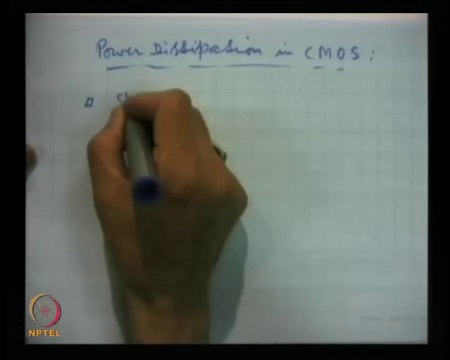 Power Dissipation in CMOS:
NPTEL